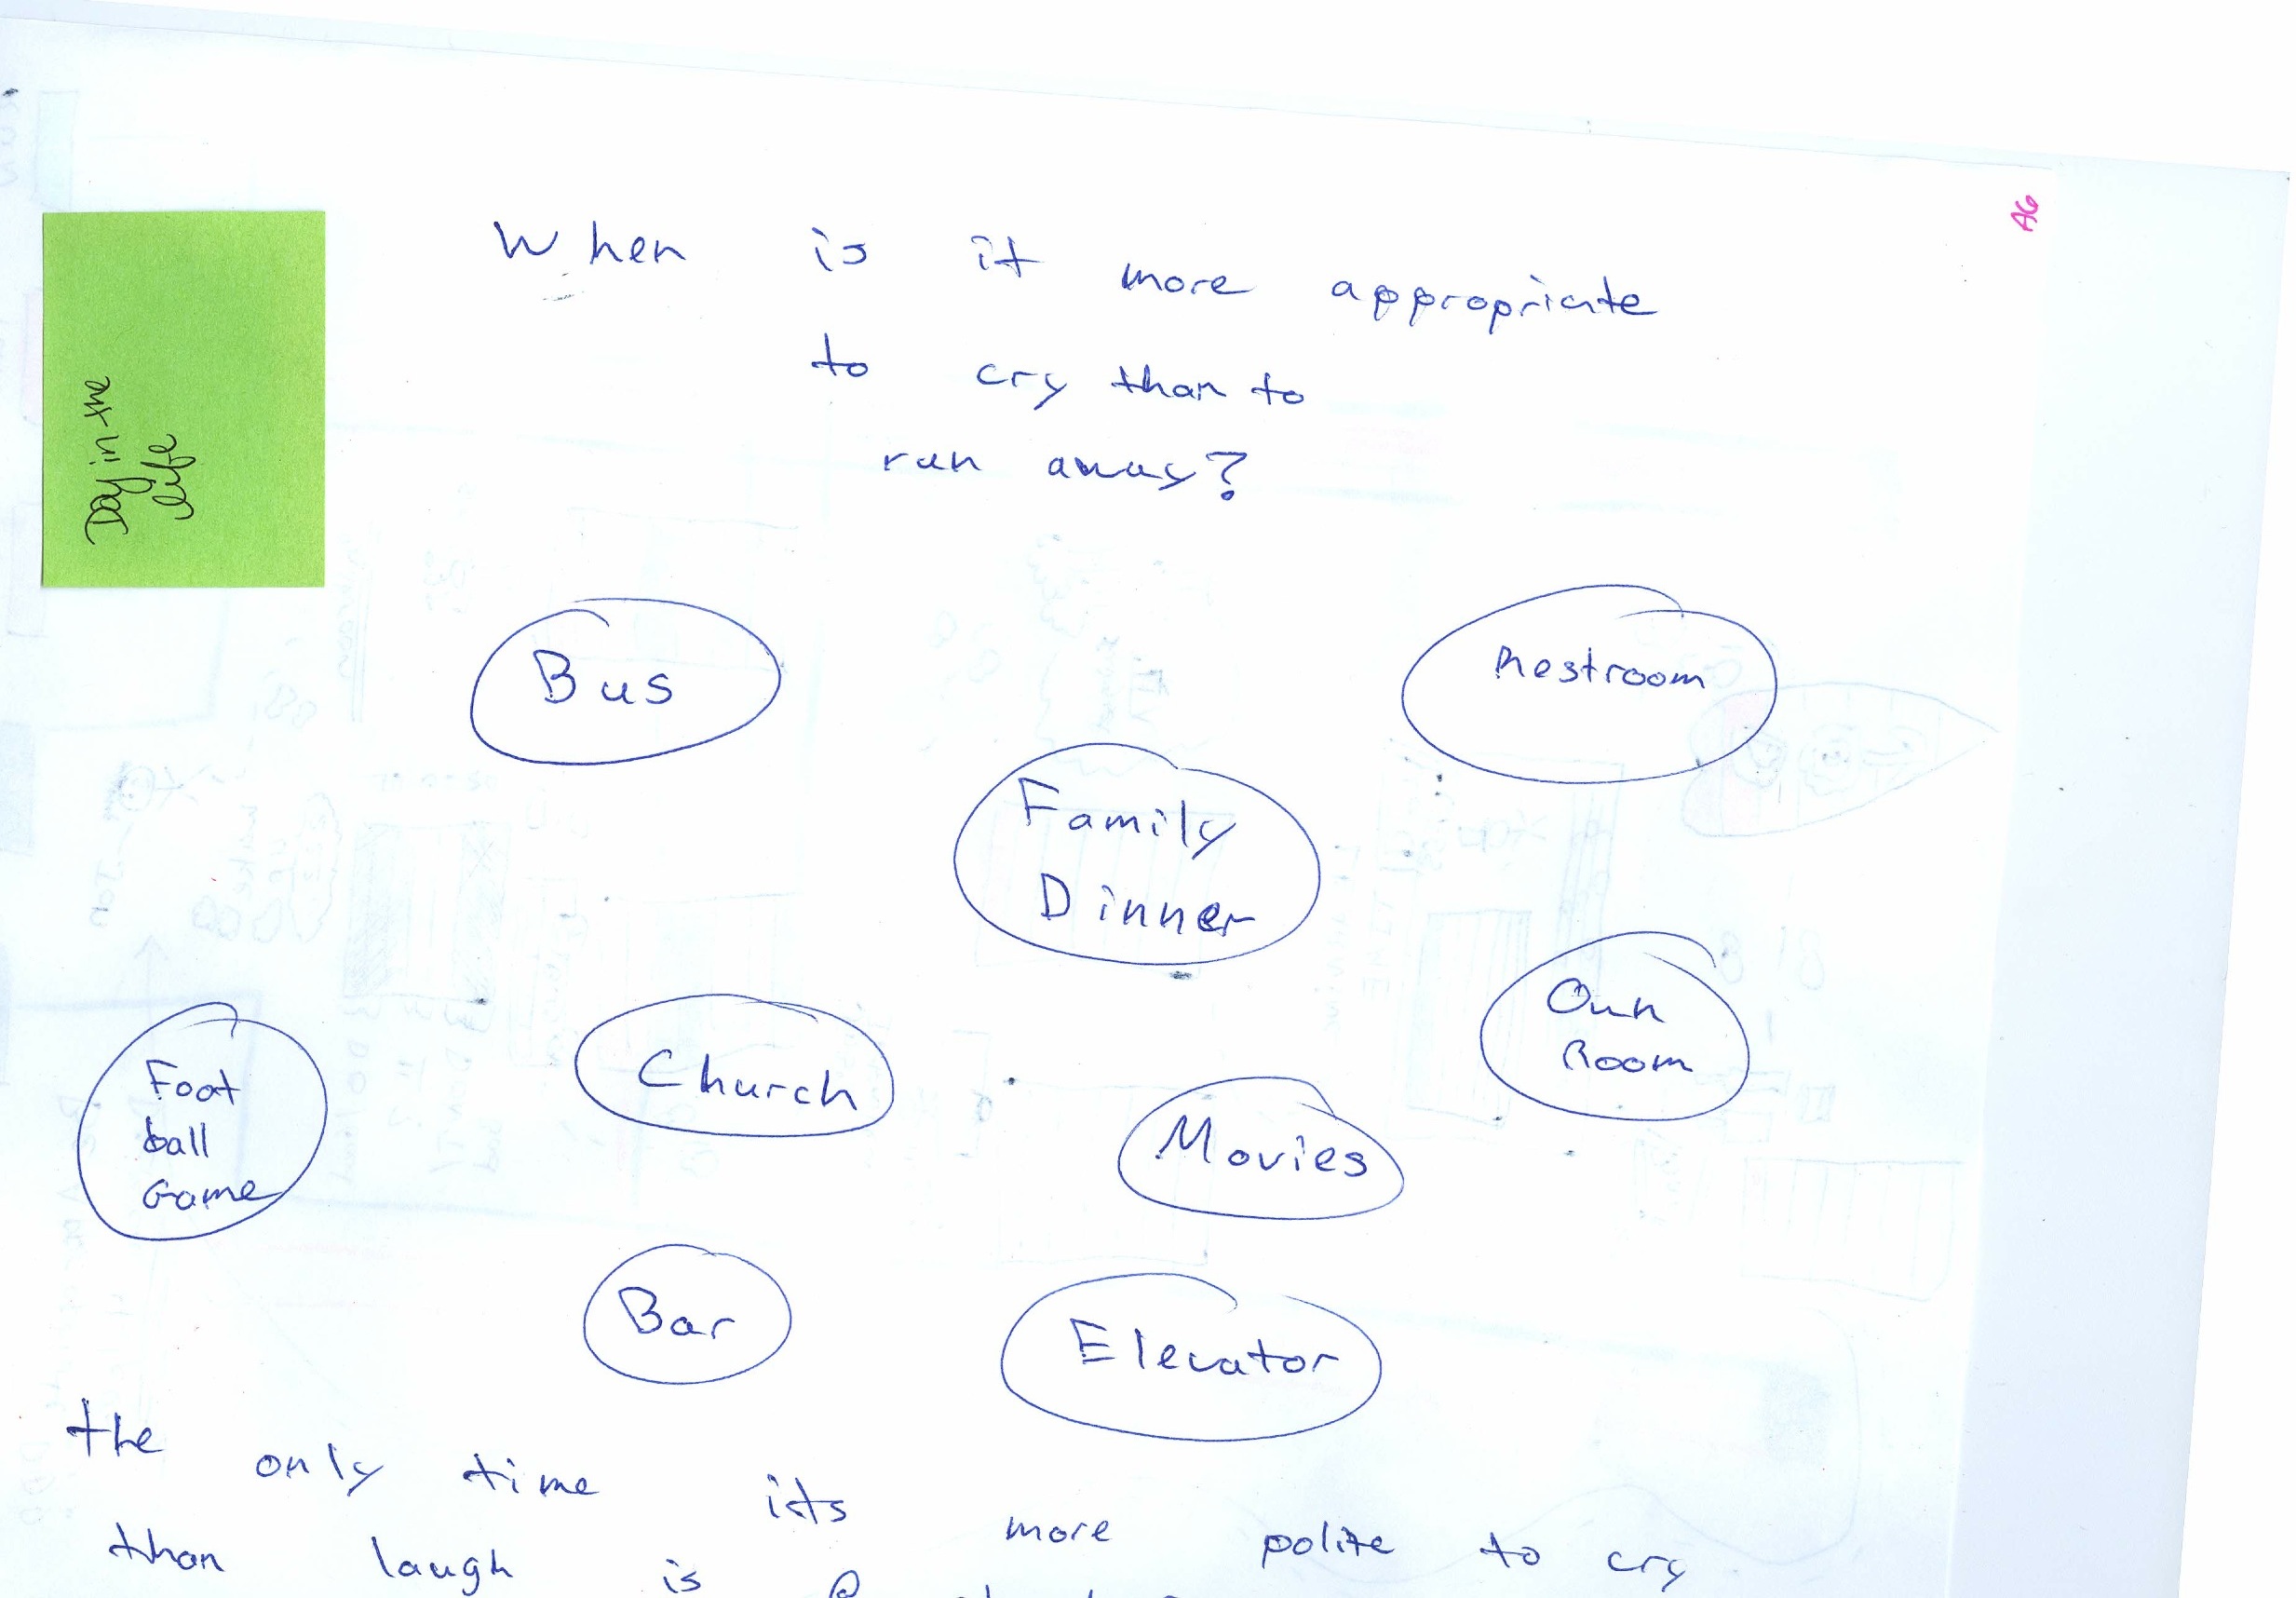 A6
When is it more appropriate
to cry than to
run away?
Day in the
life
Bus
Restroom
Family
Dinner
Own
Room
Foot
ball
Game
Church
Movies
Bar
Elevator
the only time its more polite to cry
than laugh is @